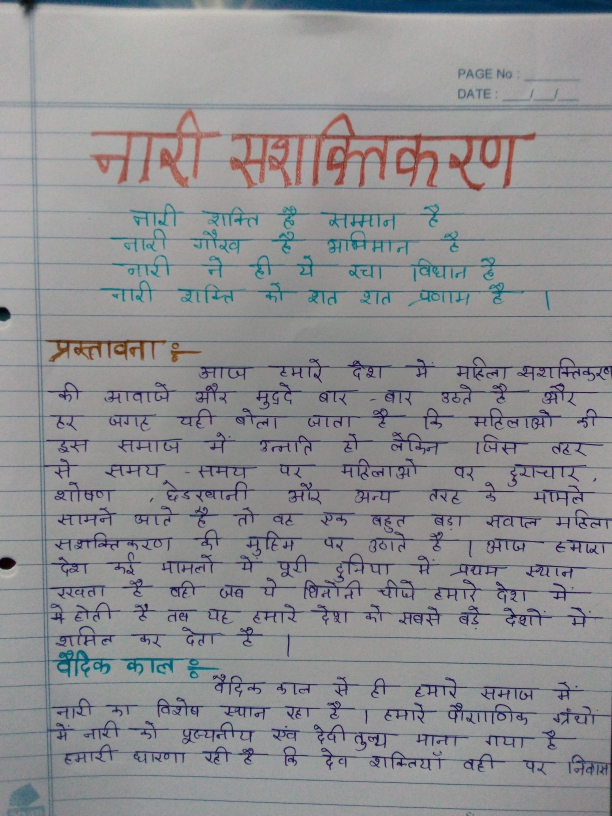 PAGE No :
DATE : __/__/__
नारी सशक्तिकरण
नारी शक्ति है सम्मान है
नारी गौरव है अभिमान है
नारी ने ही ये रचा विधान है
नारी शक्ति को शत शत प्रणाम है ।
प्रस्तावना :-
आज हमारे देश में महिला सशक्तिकरण
की आवाजे और मुद्दे बार - बार उठते है और
हर जगह यही बोला जाता है कि महिलाओ की
इस समाज में उन्नति हो लेकिन जिस तहर
से समय - समय पर महिलाओं पर दुराचार,
शोषण , छेडखानी और अन्य तरह के मामले
सामने आते है तो वह एक बहुत बडा सवाल महिला
सशक्तिकरण की मुहिम पर उठाते है । आज हमारा
देश कई मामलो में पूरी दुनिया में प्रथम स्थान
रखता है वही जब ये घिनोनी चीजे हमारे देश में
मे होती है तब यह हमारे देश को सबसे बड़े देशों में
शामिल कर देता है ।
वैदिक काल :-
वैदिक काल से ही हमारे समाज में
नारी का विशेष स्थान रहा है । हमारे पौराणिक ग्रंथो
में नारी को पूज्यनीय एवं देवी तुल्य माना गया है
हमारी धारणा रही है कि देव शक्तियाँ वही पर निवास